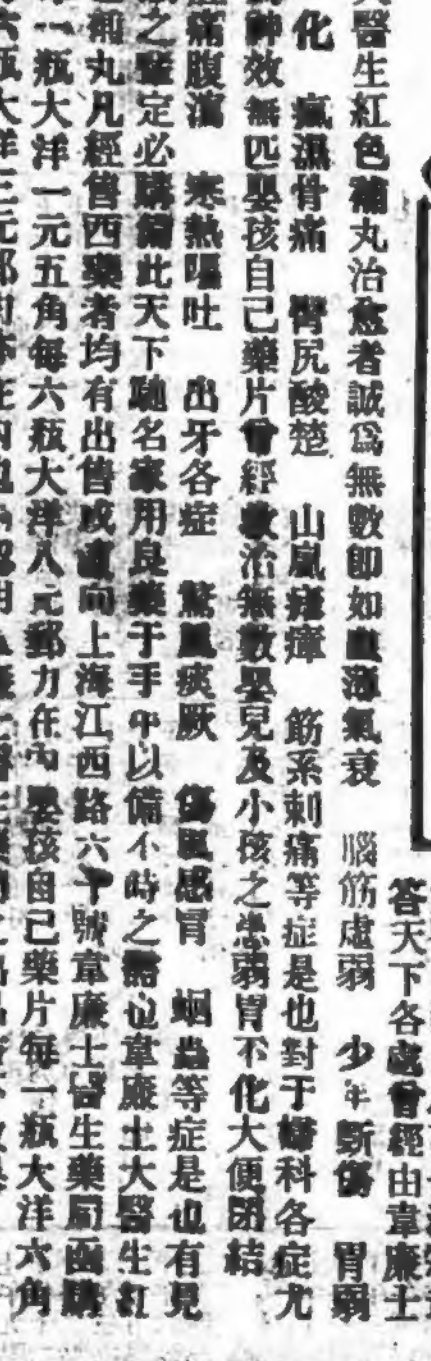 答天下各處曾經由韋廉士
大醫生紅色補丸治愈者誠爲無數即如血薄氣衰 腦筋虛弱 少年斲傷 胃弱
化 瘋濕骨痛 臀尻酸楚 山嵐瘴瘧 筋系刺痛等症是也對于婦科各症尤
神效無匹嬰孩自己藥片曾經救治無數嬰兒及小孩之患弱胃不化大便閉結
痛腹瀉 寒熱嘔吐 出牙各症 驚風痰厥 傷風感冒 蛔蟲等症是也有見
之鑒定必購備此天下馳名家用良藥于手中以備不時之需也韋廉士大醫生紅
補丸凡經售西藥者均有出售或直向上海江西路六十號韋廉士醫生藥局函購
一瓶大洋一元五角每六瓶大洋八元郵力在內嬰孩自己藥片每一瓶大洋六角
六瓶大洋三元郵